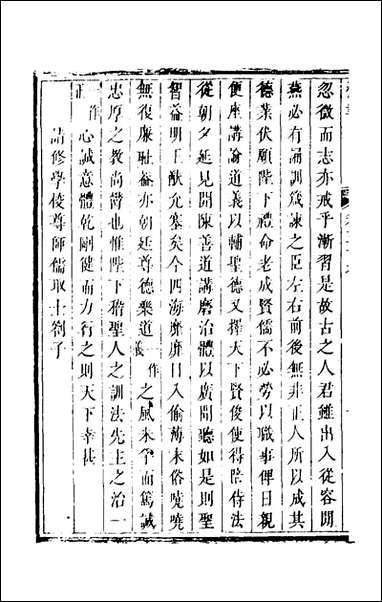 忽微而志亦戒乎漸習是故古之人君雖出入從容閒
燕必有誦訓箴諫之臣左右前後無非正人所以成其
德業伏願陛下禮命老成賢儒不必勞以職事俾日親
便座講論道義以輔聖德又擇天下賢俊使得陪侍法
從朝夕延見開陳善道講磨治體以廣聞聽如是則聖
智益明王猷允塞矣今四海靡靡日入偷薄末俗嘵嘵
無復廉恥葢亦朝廷尊德樂道一作義之風未孚而篤誠
忠厚之教尚鬱也惟陛下稽聖人之訓法先王之治一
正一作心誠意體乾剛健而力行之則天下幸甚
請修學校尊師儒取士劄子